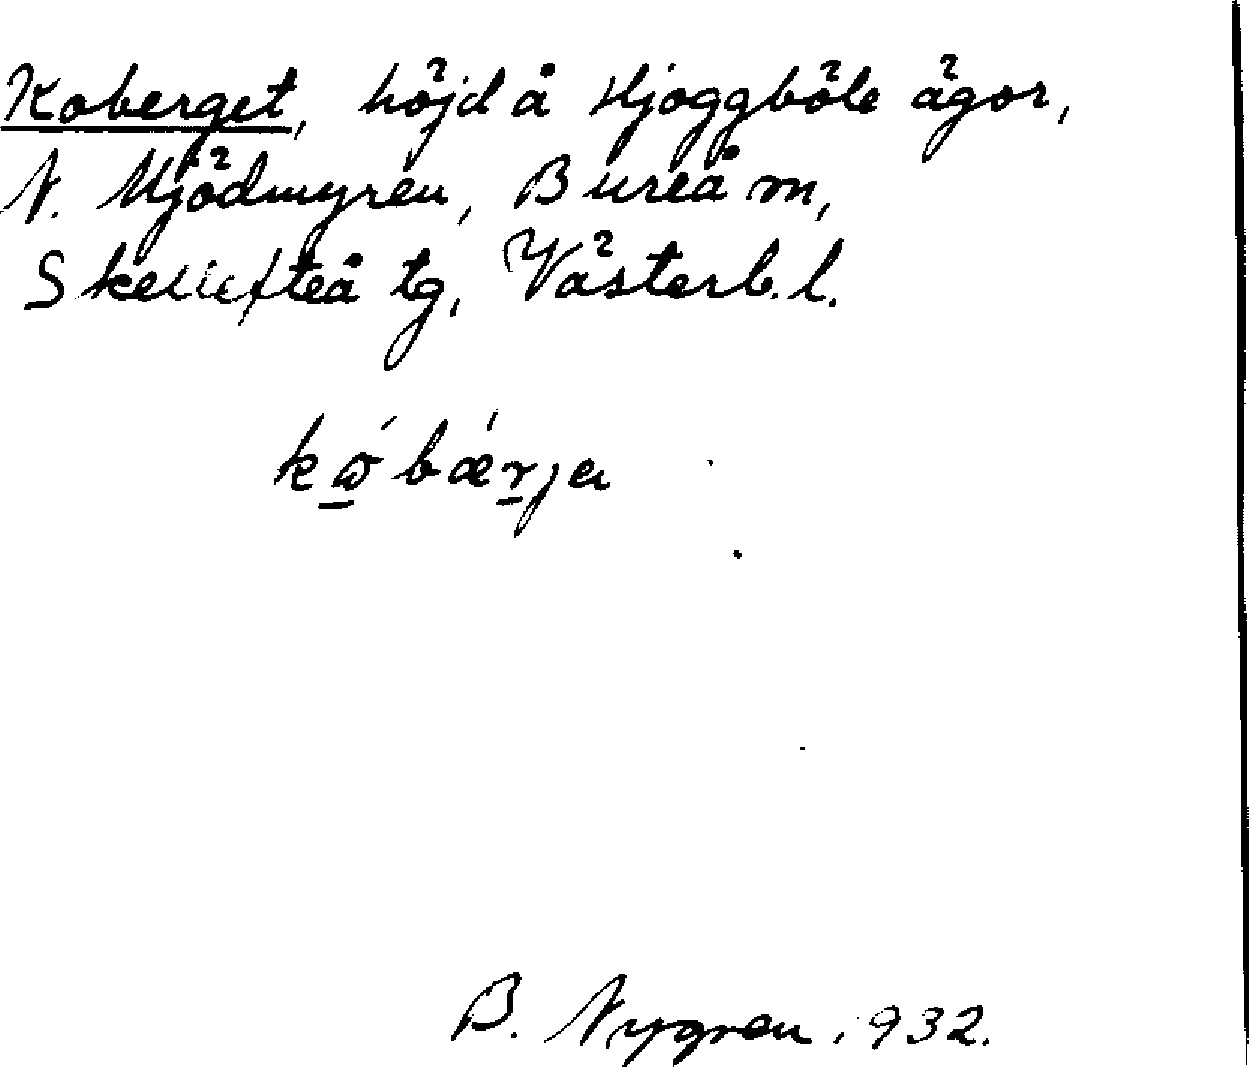 Koberget, höjd å Hjoggböle ägor,
N. Mjödmyren, Bureå m,
Skellefteå tg, Västerb. l.
kώ̱ bǽṟja
B. Nygren 1932.